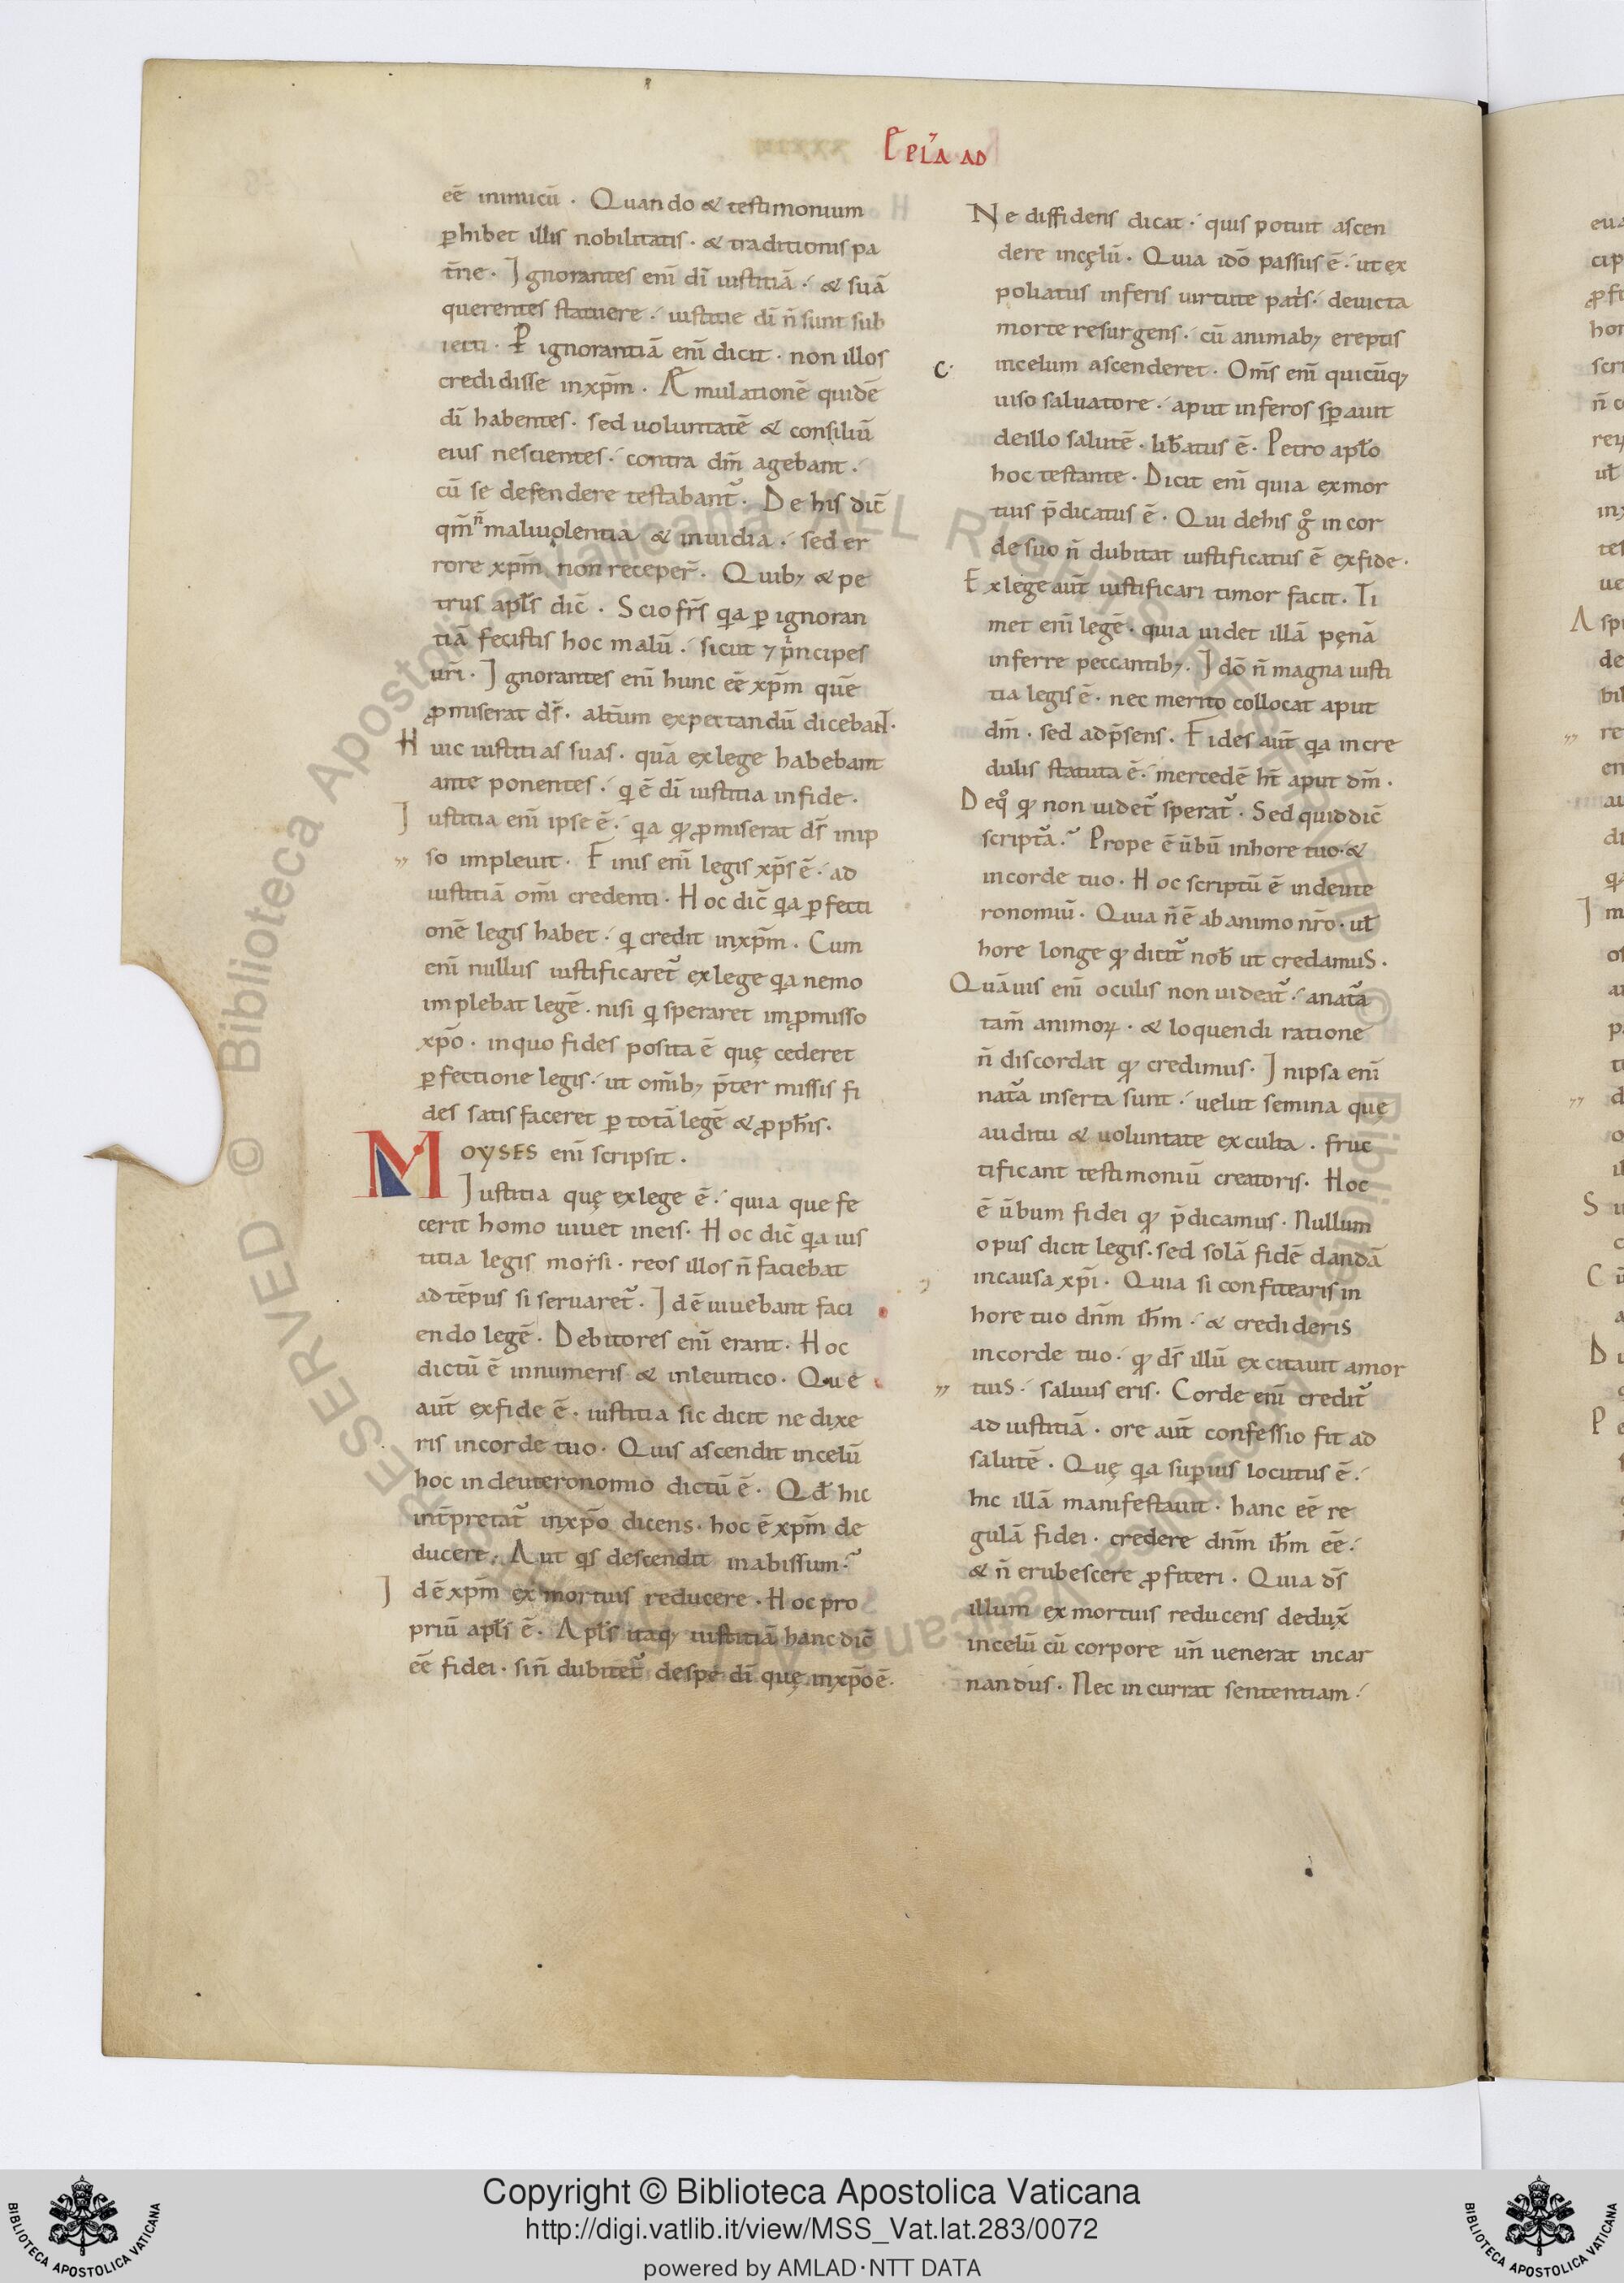 Epl̃a ad
eē inimicū . Quando & testimonium
ꝑhibet illis nobilitatis . & traditionis pa
t̄ne . Ignorantes enī dī iustitiā ; & suā
querentes statuere ; iustitie dī n̄ sunt sub
iecti . Ꝑ ignorantiā enī dicit . non illos
credidisse inxp̄m . Æmulationē quidē
dī habentes . sed uoluntatē & consiliū
eius nescientes ; contra dm̄ agebant .
cū se defendere testabant᷑ . De his dic̄
qm̄ n̄ maliuolentia & inuidia ; sed er
rore xp̄m non receper̄ . Quib; & pe
trus apl̄s dic̄ . Scio fr̄s qa ꝑ ignoran
tiā fecistis hoc malū ; sicut ⁊ pͥncipes
ur̄i . Ignorantes enī hunc eē xp̄m quē
ꝓmiserat ds̄ . alt̄um expectandū dicebant .
Huic iustitias suas . quā exlege habebant
ante ponentes ; q̄ ē dī iustitia infide .
Iustitia enī ipse ē ; qa qꝫ ꝓmiserat ds̄ inip
so impleuit . Finis enī legis xp̄s ē ; ad
iustitiā om̄i credenti . Hoc dic̄ qa ꝑfecti
onē legis habet ; q credit inxp̄m . Cum
enī nullus iustificaret᷑ exlege qa nemo
implebat legē . nisi q speraret inꝓmisso
xp̄o . inquo fides posita ē quę cederet
ꝑfectione legis ; ut om̄ib; p̄ter missis fi
des satis faceret ꝑ totā legē & ꝓph̄is .
MOYSES enī scripsit .
Iustitia quę exlege ē ; quia que fe
cerit homo uiuet ineis . Hoc dic̄ qa ius
titia legis moẏsi . reos illos n̄ faciebat
ad tēpus si seruaret᷑ . Idē uiuebant faci
endo legē . Debitores enī erant . Hoc
dictū ē innumeris & inleuitico . Que
aut̄ exfide ē . iustitia sic dicit ne dixe
ris incorde tuo . Quis ascendit incelū
hoc indeuteronomio dictū ē . Qd̄ hic
int̄pretat᷑ inxp̄o dicens . hoc ē xp̄m de
ducere . Aut qs descendit inabissum ;
Idē xp̄m ex mortuis reducere . Hoc pro
priū apl̄s ē . Apl̄s itaqꝫ iustitiā hanc dic̄
eē fidei . sin̄ dubitet᷑ despe dī quę inxp̄o ē .
Ne diffidens dicat ; quis potuit ascen
dere incęlū . Quia idō passus ē ; ut ex
poliatus inferis uirtute pat̄s ; deuicta
morte resurgens ; cū animab; ereptis
C . incelum ascenderet . Om̄s enī quicūqꝫ
uiso saluatore ; aput inferos sꝑauit
deillo salutē . lib̄atus ē . Petro apl̄o
hoc testante . Dicit enī quia exmor
tuis p̄dicatus ē . Qui dehis gͦ in cor
de suo n̄ dubitat iustificatus ē exfide .
Exlege aut̄ iustificari timor facit . Ti
met enī legē . quia uidet illā pęnā
inferre peccantib; . Idō n̄ magna iusti
tia legis ē . nec merito collocat aput
dm̄ . sed adp̄sens . Fides aut̄ qa incre
dulis statuta ē ; mercedē ht̄ aput dm̄ .
Deqͦ qꝫ non uidet᷑ sperat᷑ . Sed quid dic̄
script᷑a ; Prope ē ūbū inhore tuo . &
incorde tuo . Hoc scriptū ē indeute
ronomiū . Quia n̄ ē ab animo nr̄o . ul̄
hore longe qꝫ dicit᷑ nob̄ ut credamuS .
Quāuis enī oculis non uideat᷑ ; anat᷑a
tam̄ animoꝝ . & loquendi ratione
n̄ discordat qꝫ credimus . Inipsa enī
nat᷑a inserta sunt ; uelut semina que
auditu & uoluntate exculta . fruc
tificant testimoniū creatoris . Hoc
ē ūbum fidei qꝫ p̄dicamus . Nullum
opus dicit legis . sed solā fidē dandā
incausa xp̄i . Quia si confitearis in
hore tuo dn̄m ih̄m ; & credideris
incorde tuo ; qꝫ ds̄ illū excitauit amor
tuiS ; saluus eris . Corde enī credit᷑
ad iustitiā . ore aut̄ confessio fit ad
salutē . Quę qa suꝑius locutus ē ;
hic illā manifestauit . hanc eē re
gulā fidei . credere dn̄m ih̄m eē ;
& n̄ erubescere ꝓfiteri . Quia ds̄
illum ex mortuis reducens dedux̄
incelū cū corpore un̄ uenerat incar
nandus . Nec incurrat sententiam ;
Copyright © Biblioteca Apostolica Vaticana
http://digi.vatlib.it/view/MSS_Vat.lat.283/0072
powered by AMLAD·NTT DATA
BIBLIOTECA APOSTOLICA VATICANA
BIBLIOTECA APOSTOLICA VATICANA